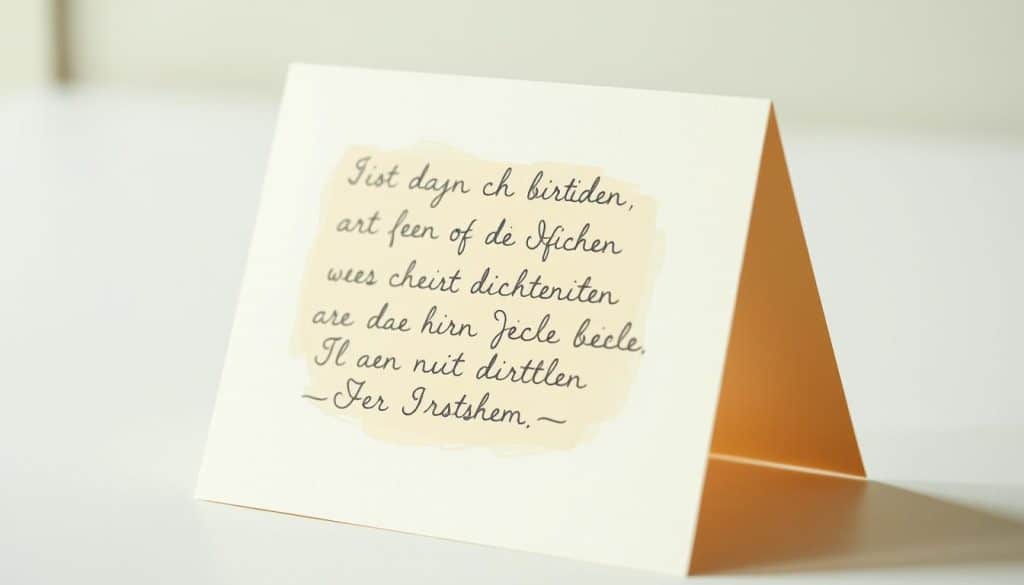 Jist dajn ch birtiden,
art feen of de Ifichen
wees cheirt dichteniten
are dae hirn Jecle becle.
Il aen nuit dirttlen
~Fer Irstshem.~